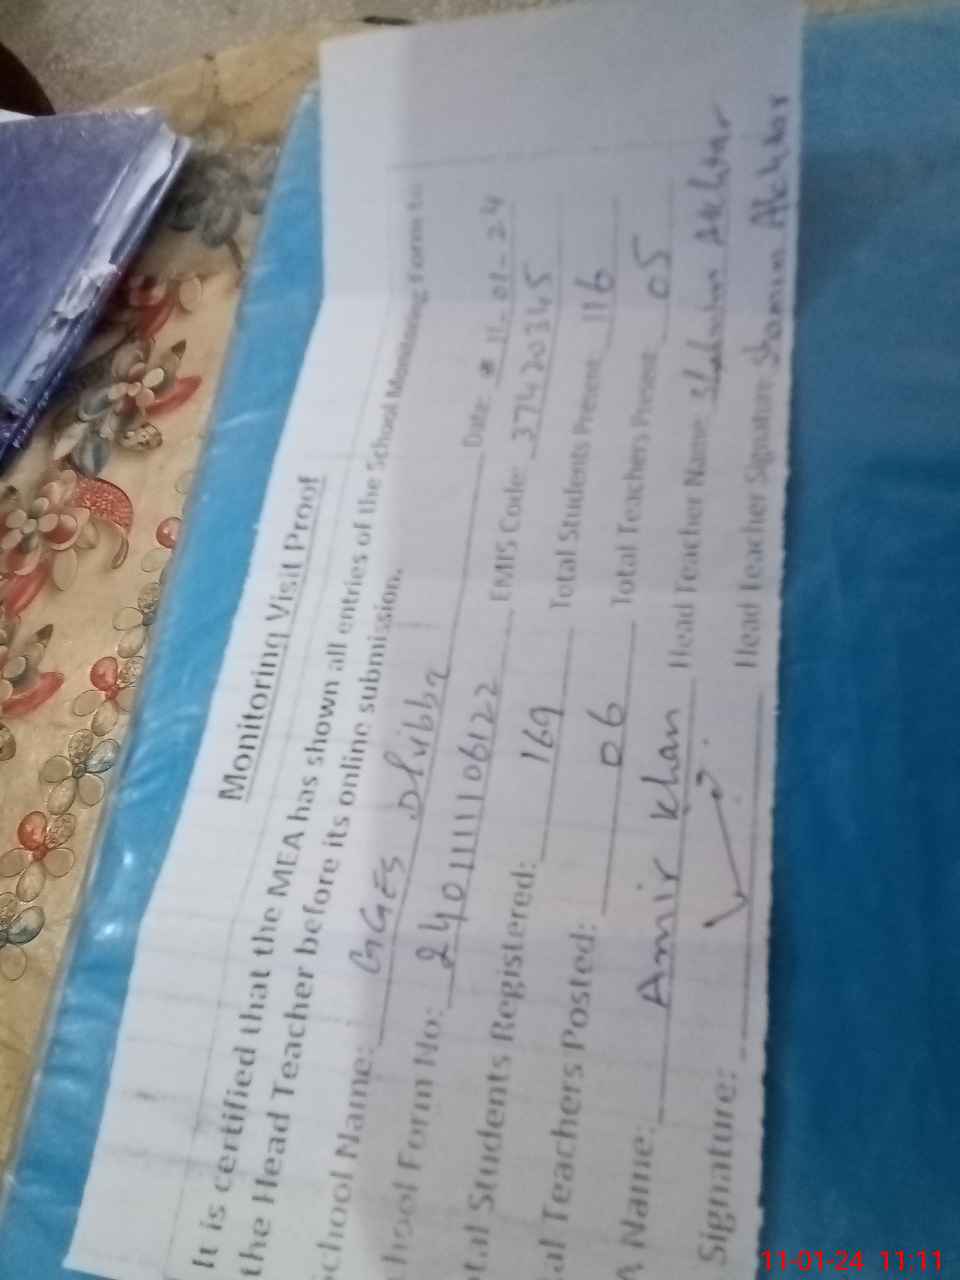 Monitoring Visit Proof
It is certified that the MEA has shown all entries of the School Monitoring Form to
the Head Teacher before its online submission.
chool Name: GGES Dhibba Date: 11-01-24
hool Form No: 2401111106122 EMIS Code: 37420345
tal Students Registered: 169 Total Students Present: 116
al Teachers Posted: 06 Total Teachers Present: 05
A Name: Amir Khan Head Teacher Name: Akhtar
Signature: Head Teacher Signature: Akhtar
11-01-24 11:11